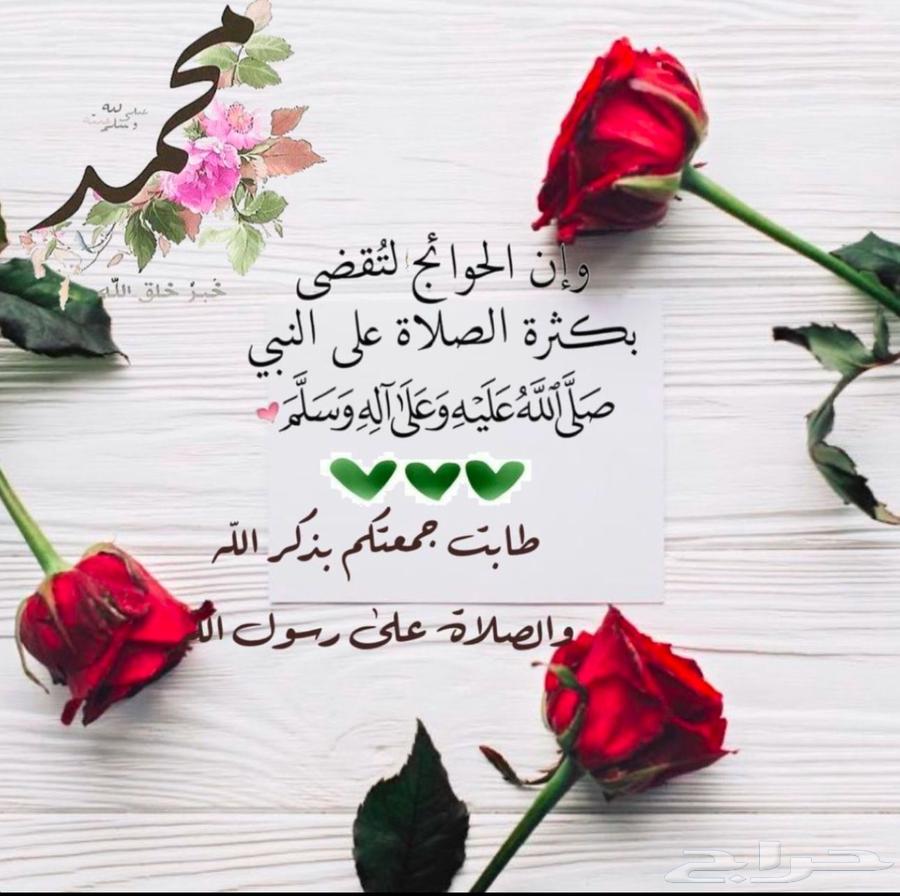 محمد
صلى الله
عليه وسلم
خير خلق الله
وإن الحوائج لتُقضى
بكثرة الصلاة على النبي
صَلَّى ٱللَّهُ عَلَيْهِ وَعَلَىٰ آلِهِ وَسَلَّمَ
طابت جمعتكم بذكر اللّه
والصلاة على رسول الله
حراج